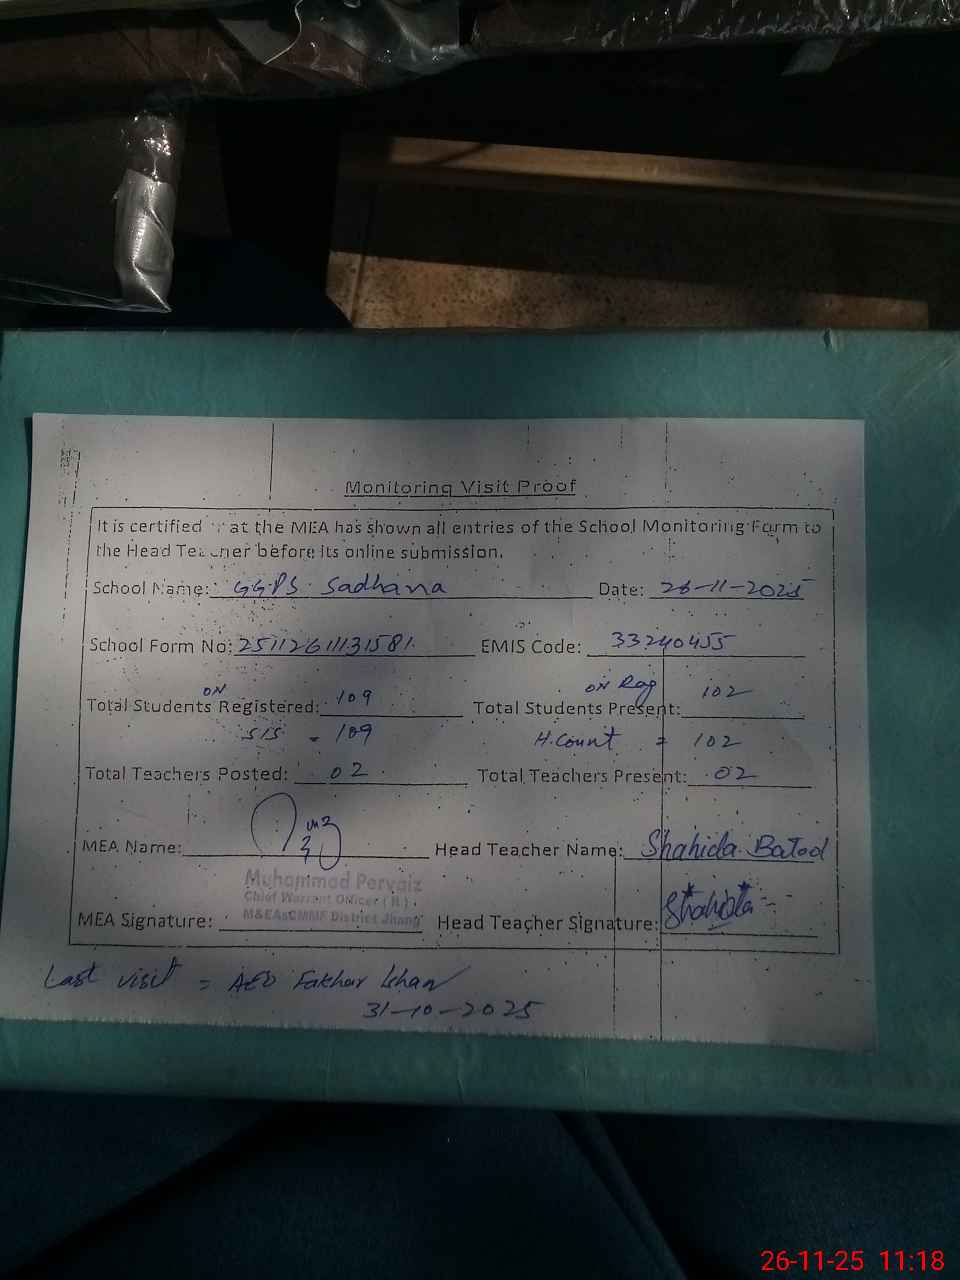 Monitoring Visit Proof
It is certified at the MEA has shown all entries of the School Monitoring Form to
the Head Teacher before its online submission.
School Name: GGPS Sadhana Date: 26-11-2025
School Form No: 25112611131581. EMIS Code: 33240455
ON ON Reg
Total Students Registered: 109 Total Students Present: 102
SIS = 109 H.Count = 102
Total Teachers Posted: 02 Total Teachers Present: 02
MEA Name: Head Teacher Name: Shahida Batool
Muhammad Pervaiz
Chief Warrant Officer ( R )
M&EAsCMMF District Jhang
MEA Signature: Head Teacher Signature: Shahida
Last visit = AEO Fakhar
31-10-2025
26-11-25 11:18